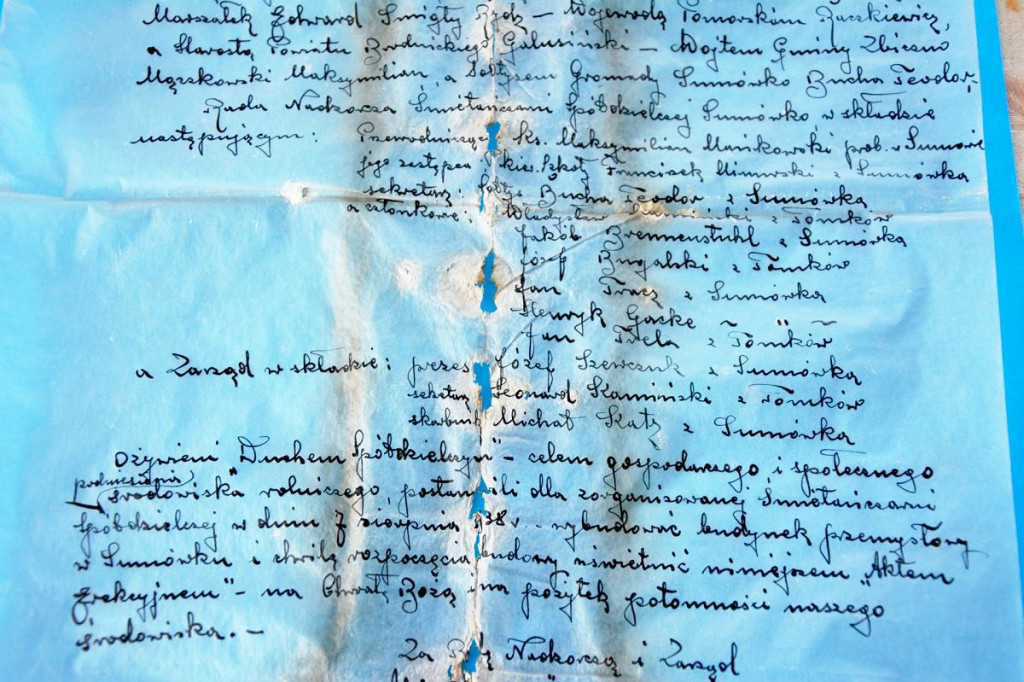 Marszałek Edward Śmigły Rydz – Wojewodą Pomorskim Raczkiewicz,
a Starostą Powiatu Brodnickiego Galusiński – Wojtem Gminy Zbiczno
Mączkowski Maksymilian, a Sołtysem Gromady Sumówko Bucha Teodor,-
Rada Nadzorcza Śmietańczarni Spółdzielczej Sumówko w składzie
następującym: Przewodniczący: ks. Maksymilian Mańkowski prob. w Sumowie
jego zastępca kier. Szkoły Franciszek z Sumówka
sekretarz: sołtys Bucha Teodor z Sumówka
a członkowie: Władysław z Tomków
Jakób Brennenstuhl z Sumówka
Józef Bugalski z Tomków
Jan Tracz z Sumówka
Henryk Gacke " "
Jan Trela z Tomków
a Zarząd w składzie: prezes Józef Szewczuk z Sumówka
sekretarz Leonard Kamiński z Tomków
skarbnik Michał Katz z Sumówka
Ożywieni "Duchem Spółdzielczym" – celem gospodarczego i społecznego
podniesienia
środowiska rolniczego, postanowili dla zorganizowanej Śmietańczarni
Spółdzielczej w dniu 7 sierpnia 38 r. – wybudować budynek przemysłowy
w Sumówku i chwilę rozpoczęcia budowy uświetnić niniejszem "Aktem
Erekcyjnem" – na Chwałę Bożą i na pożytek potomności naszego
środowiska. –
Za Radę Nadzorczą i Zarząd